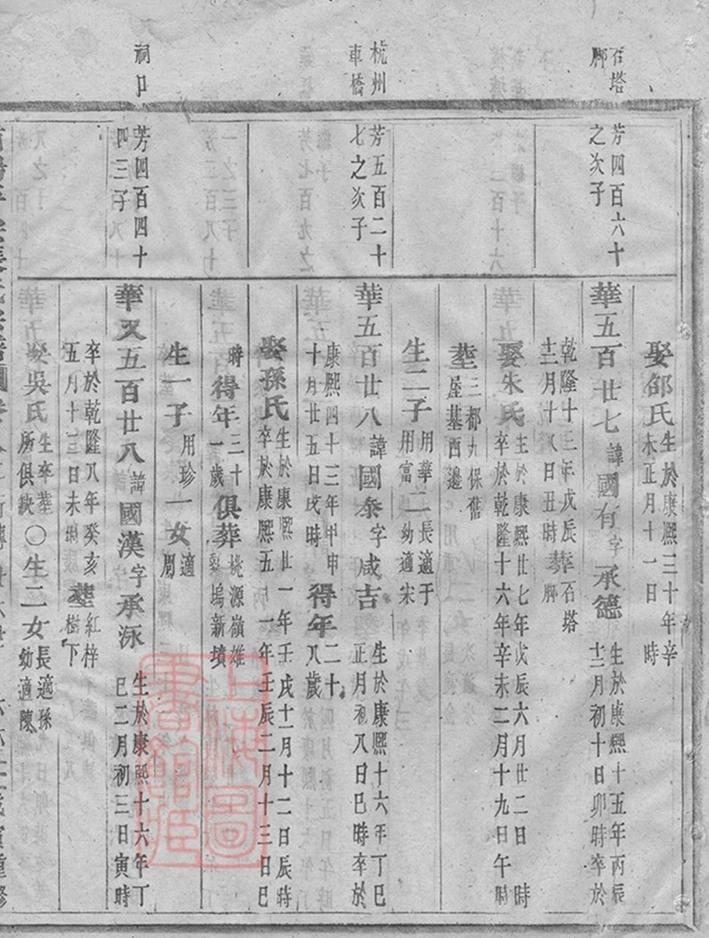 石塔
脚
杭州
車橋
祠口
芳四百六十
之次子
芳五百二十
七之次子
芳四百四十
四三子
娶邵氏生於康熙三十年辛
未正月十一日 時
華五百廿七諱國有字承德生於康熙十五年丙辰
十二月初十日卯時卒於
乾隆十三年戊辰
十二月十八日丑時葬石塔
脚
娶朱氏生於康熙廿七年戊辰六月廿二日 時
卒於乾隆十六年辛未二月十九日午時
塟三都九保舊
屋基西邊
生二子用華
用富二女長適于
幼適宋
華五百廿八諱國泰字咸吉生於康熙十六年丁巳
正月初八日巳時卒於
康熙四十三年甲申
十月廿五日戌時得年二十
八歲
娶孫氏生於康熙廿一年壬戌十一月十二日辰時
卒於康熙五十一年壬辰二月十三日巳
時得年三十
一歲俱葬桃源嶺雄
塢新墳
生一子用珍一女適
周
華又五百廿八諱國漢字承泳生於康熙十六年丁
巳二月初三日寅時
卒於乾隆八年癸亥
五月十三日未時塟紅梓
樹下
娶吳氏生卒塟
所俱缺○生二女長適孫
幼適陳